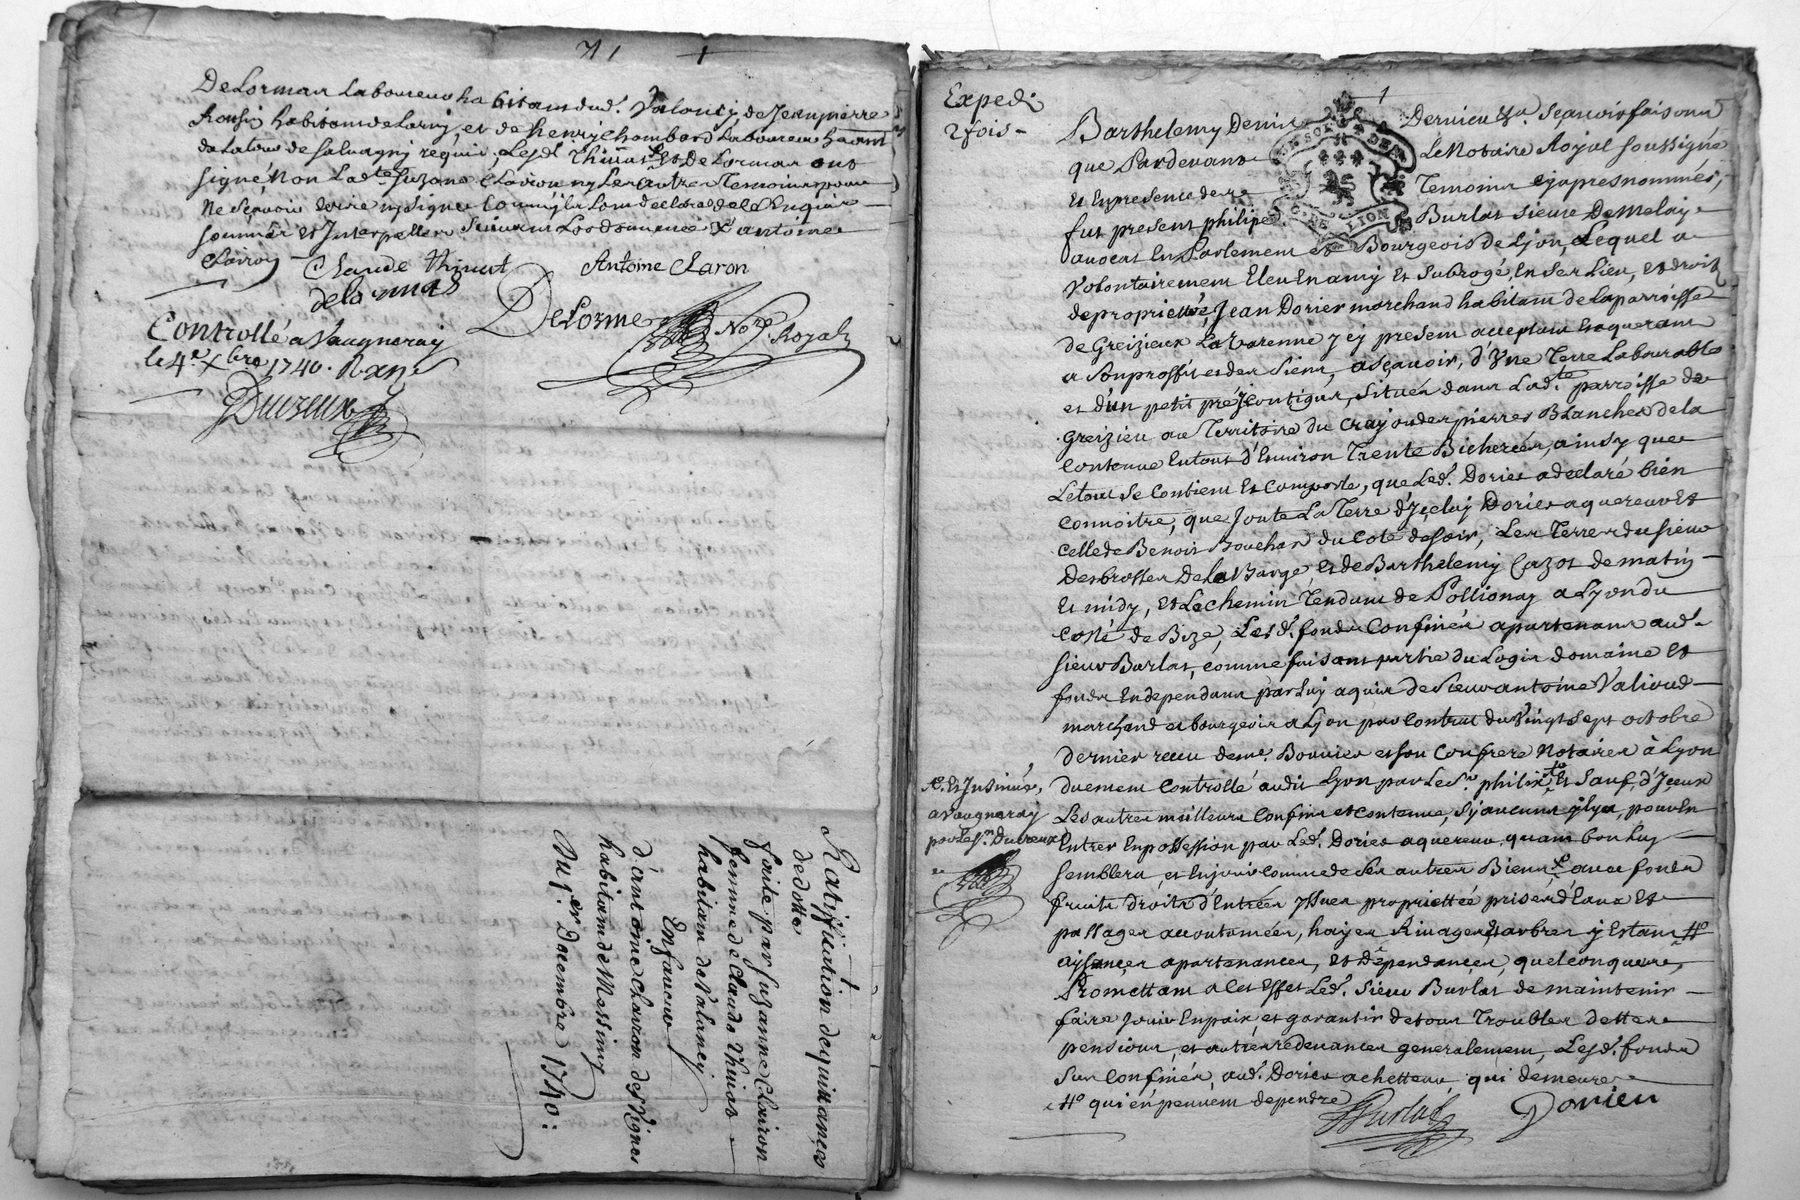 71
De Lorman Laboureur habitant dud. Valency, de Jeanpierre
habitant de et de henry chambard Laboureur ha.ant
de Latour de Salvagny requis, Lesd. Thivas et De Lorman ont
signé Non Lad.te Suzane Clairon ny Les autres Temoins pour
Ne Sçavoir Ecrire ny signer
sommés et Interpellés Suivant Lordonnance antoine
Clairon
Claude thivat
Antoine Claron
delorma
DeLorme Nore Royal
Controllé a Vaugneray
le 4.e Xbre 1740.
Ducreux
Ratiffication de quittances
de dotte
faite par Suzanne Clairon
femme de Claude Thivas
habitant de Valancy
En faveur
d'antoine Claron des
habitant de Messimy
Du 1.er Décembre 1740:
Exped.
2 fois
1
Barthelemy Denis Dernier Sçavoir faisons
que Pardevant Le Notaire Royal soussigné
Et En presence de Temoins cy apres nommés,
GEN. DE LION
fut present philipe Burlat Sieur De Melay
avocat En Parlement et Bourgeois de Lyon, Lequel a
Volontairement Eleu En amy Et Subrogé En Ser Lieu, et droit
de proprietté, Jean Dorier marchand habitant de La parroisse
de Greizieux La Varenne y cy present acceptant Et aquerant
a Son proffit et des Siens, a Sçavoir, d'Une Terre Labourable
et d'un petit pré Contigus, Situés dans Lad.te parroisse de
Greizieu au Territoire du Cray ou des pierres Blanches de la
Contenue En tout d'Environ Trente Bicherées, ainsy que
Le tout Se Contient Et Comporte, que Led. Dorier a declaré bien
Connoitre, que Joute La Terre d'Yceluy Dorier aquereur Et
Celle de Benoit Bouchar du Coté de Soir, Les Terres du Sieur
Desbrosses De La Barge, et de Barthelemy Cazot de matin
Et midy, Et Le chemin Tendant de Pollionay a Lyon du
Costé de Bize, Lesd. fonds Confinés apartenans aud.
Sieur Burlat, comme faisant partie du Logis domaine Et
fonds En dependans par Luy aquis de Sieur antoine Valioud
marchand et bourgeois a Lyon par Contrat du Vingt Sept octobre
dernier receu de me. Bonnier et son Confrere Notaires à Lyon
duement Controllé audit Lyon par Le Sr. philix Et Sauf, d'Yceux
Les autres meilleurs Confins et Contenue, Sy aucuns y'lya, pour En
Entrer En possession par Led. Dorier aquereur, quant bon Luy
Semblera, et En jouir comme de Ses autres Biens avec fonds
fruits droits d'Entrées Yssues proprietté prises d'Eaux Et
passages accoutumées, hayes Rivages et arbres y Estans #
aysances apartenances, et dependances, quelconques,
Promettant a Cet Effet Led. Sieur Burlat de maintenir
faire jouir En paix, et garantir de tous Troubles dettes
pensions, et autres redevances generalement, Lesd. fonds
Sus Confinés, aud. Dorier achetteur, qui demeure
# qui en peuvent dependre
Burlat Dorier
Et Insinué,
a Vaugneray
par Le Sr. Ducreux